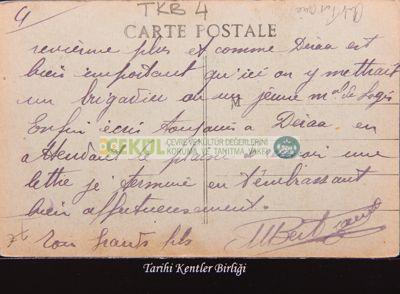 4
TKB 4
CARTE POSTALE
revienne plus et comme Deraa est
bien important qu'ici on y mettrait
un brigadier ou un jeune mal de Logis
M
Enfin écris toujours a Deraa en
ÇEKÜL ÇEVRE VE KÜLTÜR DEĞERLERİNİ
KORUMA VE TANITMA VAKFI
attendant le plaisir une
lettre je termine en t'embrassant
bien affectueusement.
Ton grants fils
MBert
Tarihi Kentler Birliği